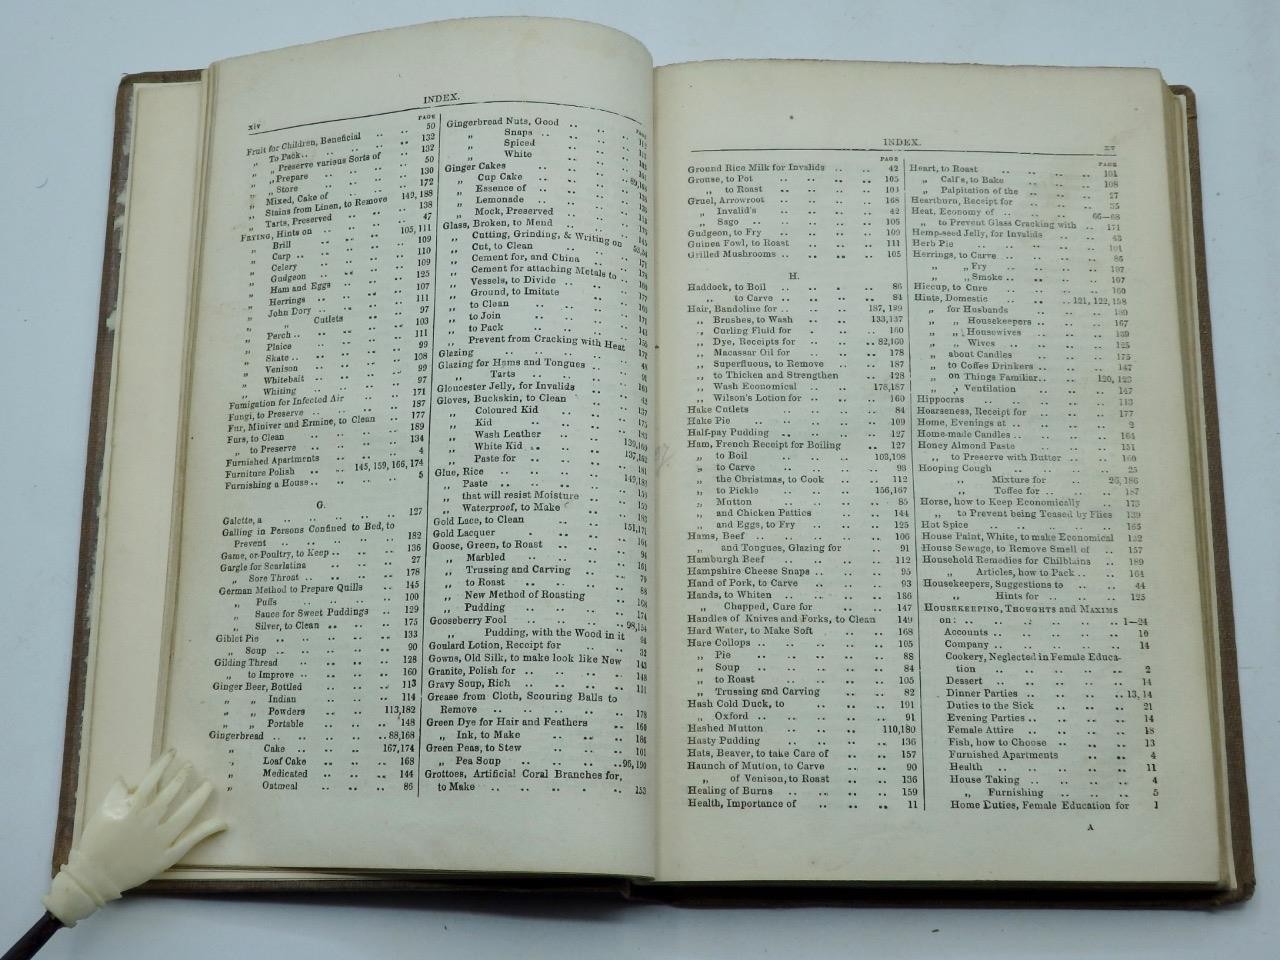 xiv
INDEX.
PAGE
Fruit for Children, Beneficial .. .. 50
„ To Pack .. .. .. .. 132
„ „ Preserve various Sorts of .. 132
„ „ Prepare .. .. .. 50
„ „ Store .. .. .. 130
„ Mixed, Cake of .. .. 172
„ Stains from Linen, to Remove 149, 188
„ Tarts, Preserved .. .. 138
FRYING, Hints on .. .. .. 47
„ Brill .. .. .. 105, 111
„ Carp .. .. .. 109
„ Celery .. .. .. 110
„ Gudgeon .. .. .. 109
„ Ham and Eggs .. .. 125
„ Herrings .. .. .. 107
„ John Dory .. .. .. 111
„ „ Cutlets .. .. 97
„ Perch .. .. .. 103
„ Plaice .. .. .. 111
„ Skate .. .. .. 99
„ Venison .. .. .. 108
„ Whitebait .. .. .. 99
„ Whiting .. .. .. 97
Fumigation for Infected Air .. 171
Fungi, to Preserve .. .. .. 187
Fur, Miniver and Ermine, to Clean 177
Furs, to Clean .. .. .. 189
„ to Preserve .. .. .. 134
Furnished Apartments .. .. 4
Furniture Polish .. .. 145, 159, 166, 174
Furnishing a House .. .. .. 5
G.
Galette, a .. .. .. .. 127
Galling in Persons Confined to Bed, to
Prevent .. .. .. .. 182
Game, or Poultry, to Keep .. .. 136
Gargle for Scarlatina .. .. 27
„ Sore Throat .. .. .. 178
German Method to Prepare Quills 145
„ Puffs .. .. .. 100
„ Sauce for Sweet Puddings .. 129
„ Silver, to Clean .. .. 175
Giblet Pie .. .. .. .. 133
„ Soup .. .. .. .. 90
Gilding Thread .. .. .. 128
„ to Improve .. .. .. 160
Ginger Beer, Bottled .. .. 113
„ „ Indian .. .. 114
„ „ Powders .. .. 113,182
„ „ Portable .. .. 148
Gingerbread .. .. .. .. 88,168
„ Cake .. .. .. 167,174
„ Loaf Cake .. .. 168
„ Medicated .. .. 144
„ Oatmeal .. .. 86
Gingerbread Nuts, Good .. ..
„ Snaps .. ..
„ Spiced ..
„ White ..
Ginger Cakes .. .. ..
„ Cup Cake .. ..
„ Essence of .. ..
„ Lemonade .. ..
„ Mock, Preserved ..
Glass, Broken, to Mend .. ..
„ Cutting, Grinding, & Writing on
„ Cut, to Clean .. ..
„ Cement for, and China ..
„ Cement for attaching Metals to
„ Vessels, to Divide .. ..
„ Ground, to Imitate ..
„ to Clean .. ..
„ to Join .. ..
„ to Pack .. ..
„ Prevent from Cracking with Heat
Glazing .. .. .. 172
Glazing for Hams and Tongues ..
„ Tarts .. ..
Gloucester Jelly, for Invalids ..
Gloves, Buckskin, to Clean ..
„ Coloured Kid .. 137
„ Kid .. ..
„ Wash Leather ..
„ White Kid .. ..
„ Paste for .. ..
Glue, Rice .. .. .. 181
„ Paste .. ..
„ that will resist Moisture ..
„ Waterproof, to Make ..
Gold Lace, to Clean ..
Gold Lacquer .. .. 151,171
Goose, Green, to Roast .. 164
„ Marbled .. ..
„ Trussing and Carving ..
„ to Roast .. ..
„ New Method of Roasting 88
„ Pudding .. .. 108
Gooseberry Fool .. .. 174
„ Pudding, with the Wood in it
Goulard Lotion, Receipt for ..
Gowns, Old Silk, to make look like New
Granite, Polish for .. ..
Gravy Soup, Rich .. .. 111
Grease from Cloth, Scouring Balls to
Remove .. .. .. 178
Green Dye for Hair and Feathers 160
„ Ink, to Make .. .. 186
Green Peas, to Stew .. .. 101
„ Pea Soup .. .. 96, 190
Grottoes, Artificial Coral Branches for,
to Make .. .. .. 153
INDEX.
xv
PAGE
Ground Rice Milk for Invalids .. 42
Grouse, to Pot .. .. .. 105
„ to Roast .. .. .. 103
Gruel, Arrowroot .. .. 168
„ Invalid's .. .. .. 42
„ Sago .. .. .. 105
Gudgeon, to Fry .. .. .. 109
Guinea Fowl, to Roast .. .. 111
Grilled Mushrooms .. .. .. 105
H.
Haddock, to Boil .. .. .. 86
„ to Carve .. .. .. 84
Hair, Bandoline for .. .. 187, 189
„ Brushes, to Wash .. 133,137
„ Curling Fluid for .. .. 160
„ Dye, Receipts for .. .. 82,160
„ Macassar Oil for .. .. 178
„ Superfluous, to Remove .. 187
„ to Thicken and Strengthen .. 128
„ Wash Economical .. 178,187
„ Wilson's Lotion for .. .. 160
Hake Cutlets .. .. .. 84
Hake Pie .. .. .. 109
Half-pay Pudding .. .. .. 127
Ham, French Receipt for Boiling 127
„ to Boil .. .. .. 103,108
„ to Carve .. .. .. 93
„ the Christmas, to Cook .. 112
„ to Pickle .. .. 156,167
„ Mutton .. .. .. 85
„ and Chicken Patties .. 144
„ and Eggs, to Fry .. .. 125
Hams, Beef .. .. .. 106
„ and Tongues, Glazing for 91
Hamburgh Beef .. .. .. 112
Hampshire Cheese Snaps .. .. 95
Hand of Pork, to Carve .. .. 93
Hands, to Whiten .. .. .. 186
„ Chapped, Cure for .. 147
Handles of Knives and Forks, to Clean 149
Hard Water, to Make Soft .. 168
Hare Collops .. .. .. .. 105
„ Pie .. .. .. .. 88
„ Soup .. .. .. .. 84
„ to Roast .. .. .. 105
„ Trussing and Carving .. .. 82
Hash Cold Duck, to .. .. 191
„ Oxford .. .. .. 91
Hashed Mutton .. .. 110,180
Hasty Pudding .. .. .. 136
Hats, Beaver, to take Care of .. 157
Haunch of Mutton, to Carve .. 90
„ of Venison, to Roast .. 136
Healing of Burns .. .. .. 159
Health, Importance of .. .. 11
PAGE
Heart, to Roast .. .. .. 101
„ Calf's, to Bake .. .. 108
„ Palpitation of the .. .. 27
Heartburn, Receipt for .. .. 35
Heat, Economy of .. .. 66—68
„ to Prevent Glass Cracking with .. 171
Hemp-seed Jelly, for Invalids .. 43
Herb Pie .. .. .. .. 101
Herrings, to Carve .. .. .. 86
„ „ Fry .. .. .. 107
„ „ Smoke .. .. .. 107
Hiccup, to Cure .. .. .. 160
Hints, Domestic .. .. 121, 122, 158
„ for Husbands .. .. 180
„ „ Housekeepers .. .. 167
„ „ Housewives .. .. 139
„ „ Wives .. .. .. 125
„ about Candles .. .. 175
„ to Coffee Drinkers .. .. 147
„ on Things Familiar .. 120, 123
„ „ Ventilation .. .. 147
Hippocras .. .. .. .. 113
Hoarseness, Receipt for .. .. 177
Home, Evenings at .. .. .. 2
Home-made Candles .. .. .. 164
Honey Almond Paste .. .. 151
„ to Preserve with Butter .. 160
Hooping Cough .. .. .. 25
„ Mixture for .. 26,186
„ Toffee for .. .. 187
Horse, how to Keep Economically .. 173
„ to Prevent being Teased by Flies 139
Hot Spice .. .. .. .. 165
House Paint, White, to make Economical 152
House Sewage, to Remove Smell of .. 157
Household Remedies for Chilblains .. 189
„ Articles, how to Pack .. 164
Housekeepers, Suggestions to .. 44
„ Hints for .. .. 125
HOUSEKEEPING, THOUGHTS and MAXIMS
on: .. .. .. .. 1—24
Accounts .. .. .. .. 10
Company .. .. .. .. 14
Cookery, Neglected in Female Educa-
tion .. .. .. .. 2
Dessert .. .. .. .. 14
Dinner Parties .. .. .. 13, 14
Duties to the Sick .. .. 21
Evening Parties .. .. .. 14
Female Attire .. .. .. 18
Fish, how to Choose .. .. 13
Furnished Apartments .. .. 4
Health .. .. .. .. 11
House Taking .. .. .. 4
„ Furnishing .. .. .. 5
Home Duties, Female Education for 1
A